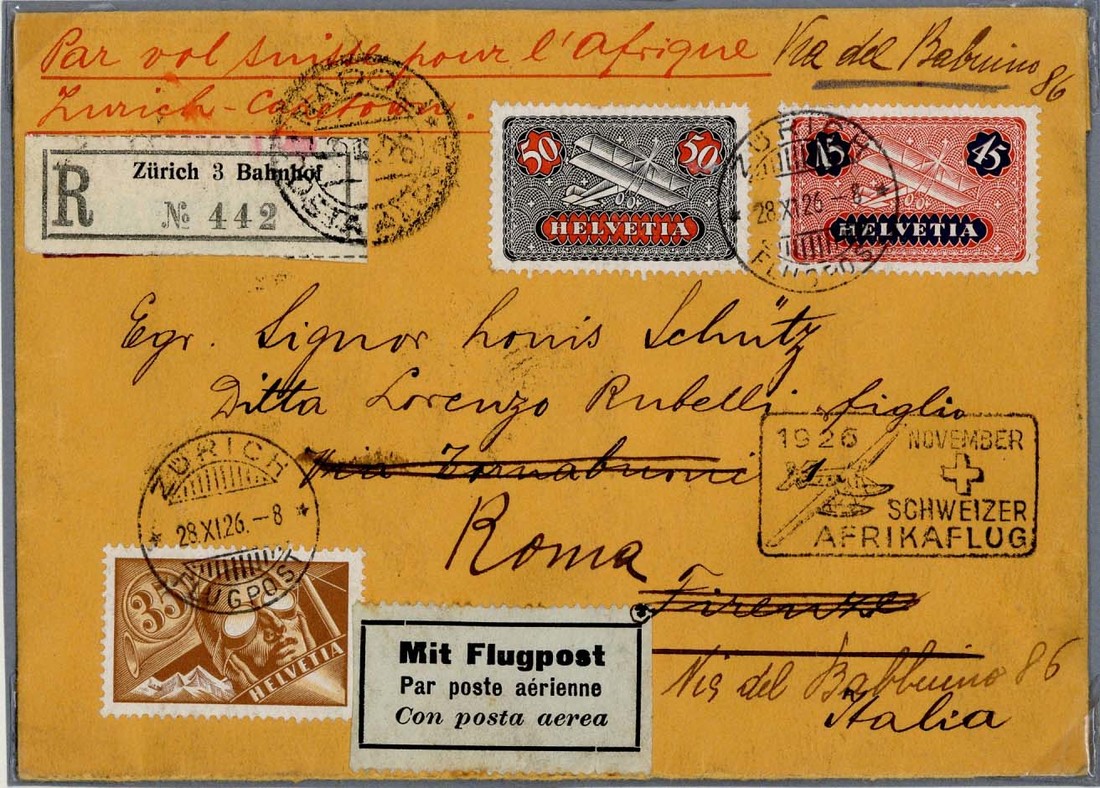 Par vol suisse pour l'Afrique
Via del Babuino 86
Zurich-Capetown.
R
Zürich 3 Bahnhof
№ 442
NAPOLI
50 50
HELVETIA
15 45
HELVETIA
ZÜRICH
28.XI.26.-8
FLUGPOST
Egr. Signor Louis Schütz
Ditta Lorenzo Rubelli figlio
Via Tornabuoni
Roma
Firenze
Via del Babbuino 86
Italia
1926 NOVEMBER
SCHWEIZER
AFRIKAFLUG
ZÜRICH
28.XI.26.-8
FLUGPOST
35
HELVETIA
Mit Flugpost
Par poste aérienne
Con posta aerea